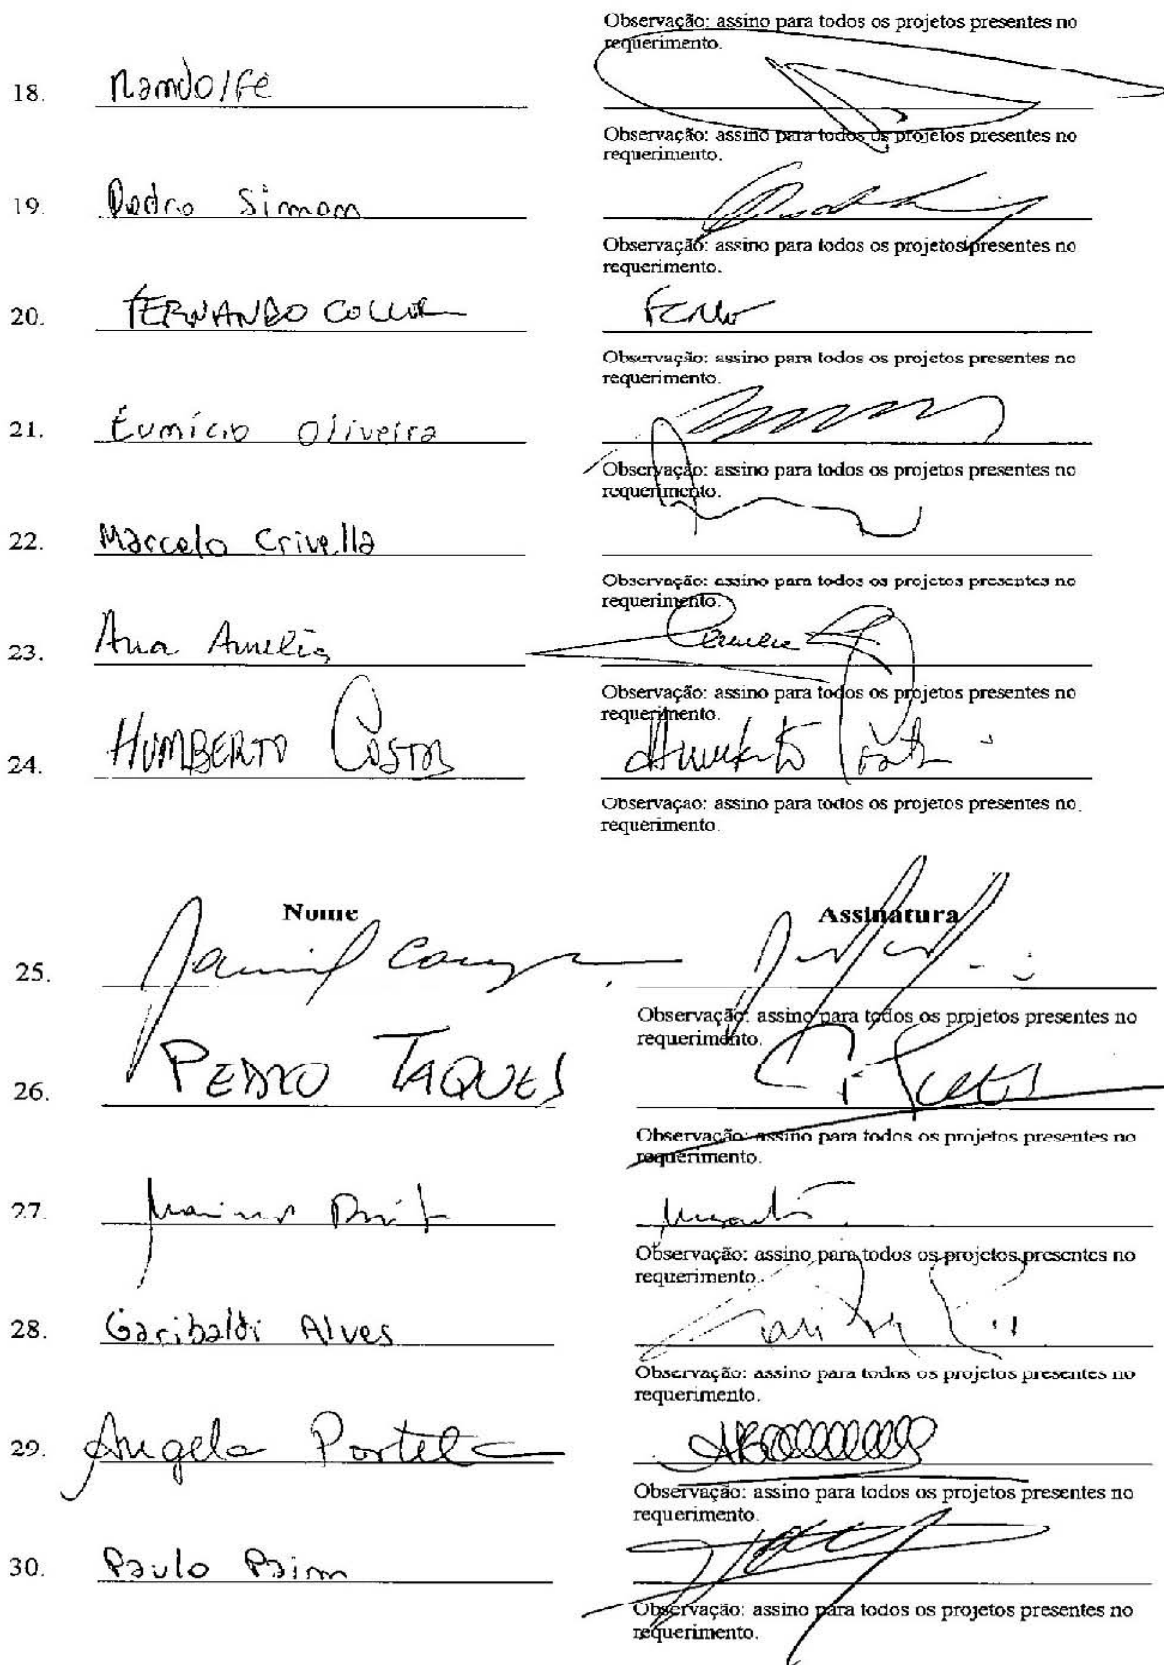 Observação: assino para todos os projetos presentes no
requerimento.
18. Randolfe
Observação: assino para todos os projetos presentes no
requerimento.
19. Pedro Simon
Observação: assino para todos os projetos presentes no
requerimento.
20. FERNANDO COLLOR
Observação: assino para todos os projetos presentes no
requerimento.
21. Eunício Oliveira
Observação: assino para todos os projetos presentes no
requerimento.
22. Marcelo Crivella
Observação: assino para todos os projetos presentes no
requerimento.
23. Ana Amelia
Observação: assino para todos os projetos presentes no
requerimento.
24. HUMBERTO COSTA Humberto Costa
Observação: assino para todos os projetos presentes no
requerimento.
Nome Assinatura
25.
Observação: assino para todos os projetos presentes no
requerimento.
26. PEDRO TAQUES
Observação: assino para todos os projetos presentes no
requerimento.
27.
Observação: assino para todos os projetos presentes no
requerimento.
28. Garibaldi Alves
Observação: assino para todos os projetos presentes no
requerimento.
29. Angela Portela
Observação: assino para todos os projetos presentes no
requerimento.
30. Paulo Paim
Observação: assino para todos os projetos presentes no
requerimento.